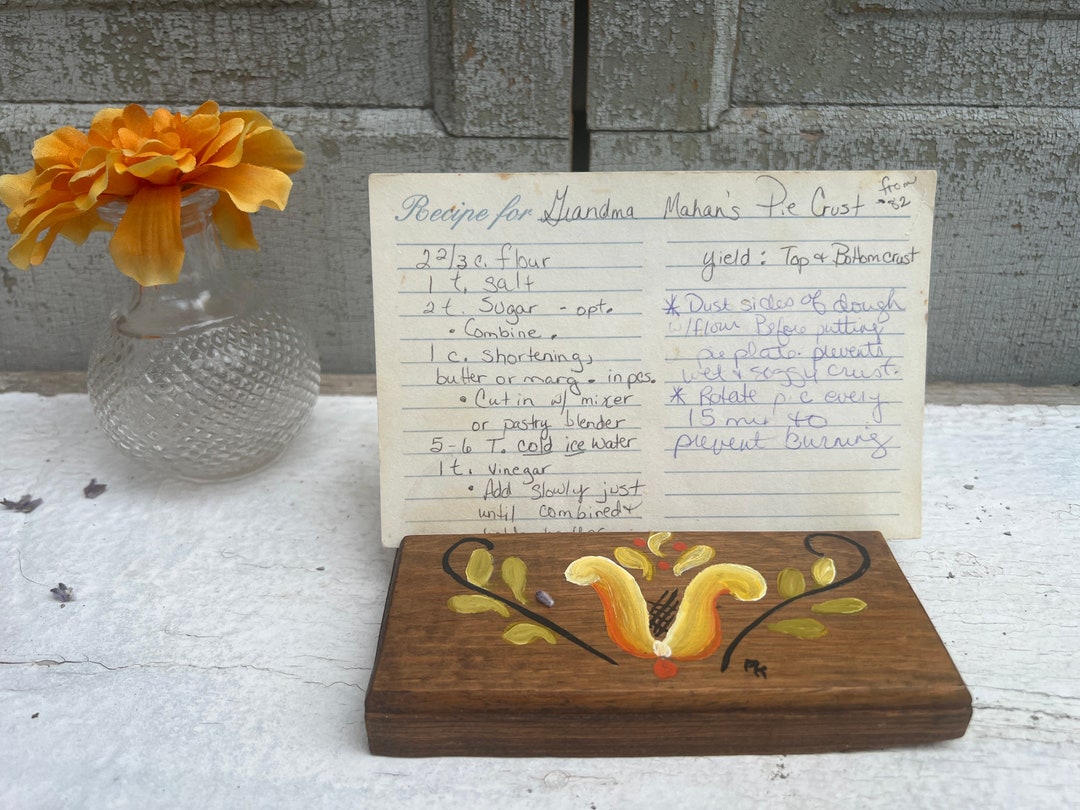 Recipe for Grandma Mahan's Pie Crust
from
-82
2 2/3 c. flour
1 t. salt
2 t. Sugar - opt.
• Combine.
1 c. shortening,
butter or marg. in pcs.
• Cut in w/ mixer
or pastry blender
5-6 T. cold ice water
1 t. vinegar
• Add slowly just
until combined +
yield: Top + Bottom crust
* Dust sides of dough
w/flour Before putting
pie plate. prevents
wet + soggy crust.
* Rotate pie every
15 min to
prevent burning
PK